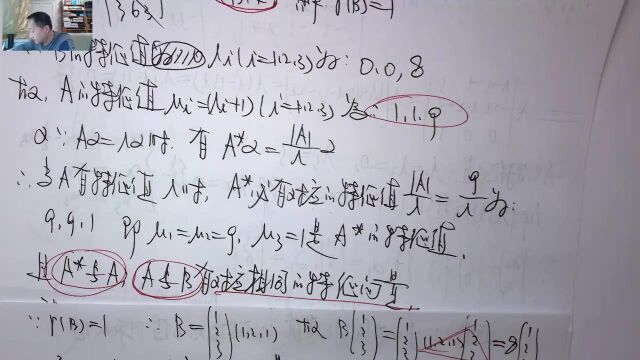 [3 6 3] r(B)=1
B的特征值 λi(i=1,2,3)为: 0,0,8
故, A的特征值 μi=(λi+1)(i=1,2,3)为: 1,1,9
又∵ Aα=λα时, 有 A*α=|A|/λ α
∴ 当A有特征值λ时, A*必有对应的特征值 |A|/λ = 9/λ 为:
9,9,1 即 μ1=μ2=9, μ3=1是A*的特征值.
且 A*与A, A与B有对应相同的特征向量.
∵ r(B)=1 ∴ B=(1 2 3)(1,2,1) 故 B(1 2 3)=(1 2 3)(1,2,1)(1 2 3)=8(1 2